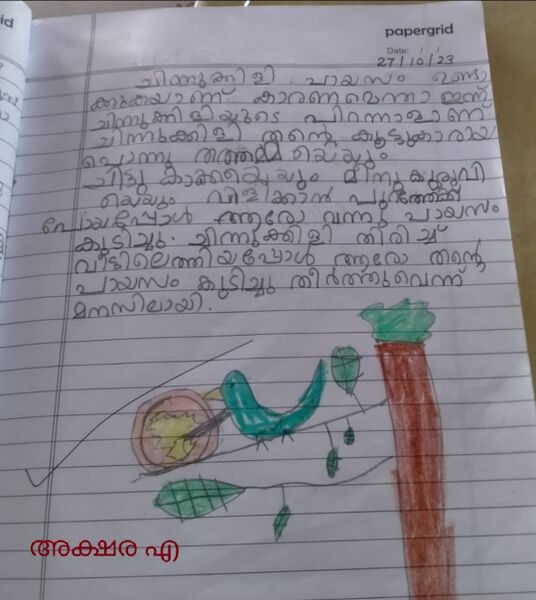 papergrid
Date: / /
27/10/23
ചിന്നുക്കിളി പായസം ഉണ്ടാ
ക്കുകയാണ് കാരണമെന്താ ഇന്ന്
ചിന്നുക്കിളിയുടെ പിറന്നാളാണ്
ചിന്നുക്കിളി തന്റെ കൂട്ടുകാരായ
പൊന്നു തത്തമ്മ യെയും
ചിട്ടു കാക്കയെയും മിന്നു കുരുവി
യെയും വിളിക്കാൻ പുറത്തേക്ക്
പോയപ്പോൾ ആരോ വന്നു പായസം
കുടിച്ചു. ചിന്നുക്കിളി തിരിച്ച്
വീട്ടിലെത്തിയപ്പോൾ ആരോ തന്റെ
പായസം കുടിച്ചു തീർത്തുവെന്ന്
മനസിലായി.
അക്ഷര എ